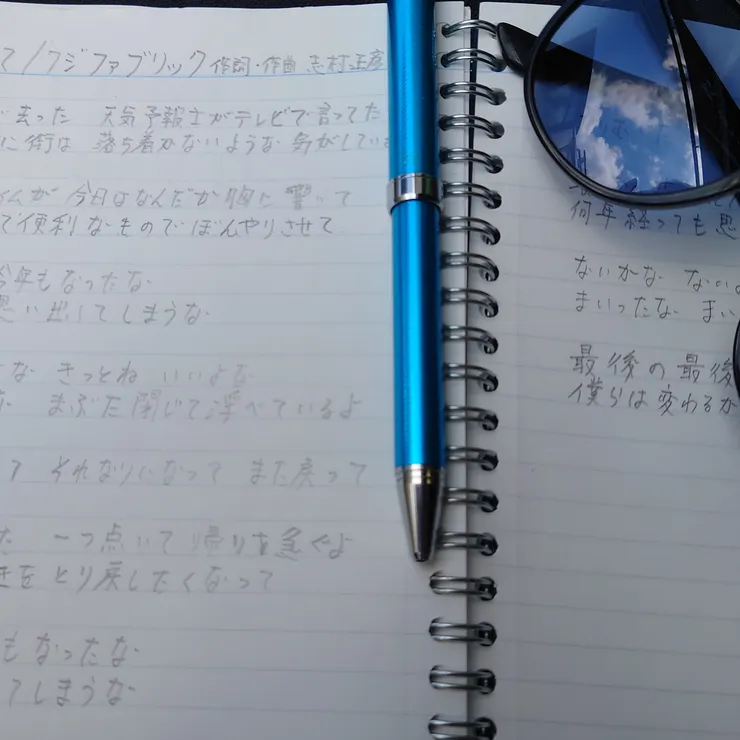 て/フジファブリック 作詞・作曲 志村正彦
去った 天気予報士がテレビで言ってた
に街は 落ち着かないような 気がしている
イムが 今日はなんだか胸に響いて
て便利なものでぼんやりさせて
今年もなったな
思い出してしまうな
な きっとね いいよな
まぶた閉じて浮べているよ
て それなりになって また戻って
た 一つ点いて 帰りを急ぐよ
をとり戻したくなって
もなったな
てしまうな
何年経っても思
ないかな ないよ
まいったな まい
最後の最後
僕らは変わるか